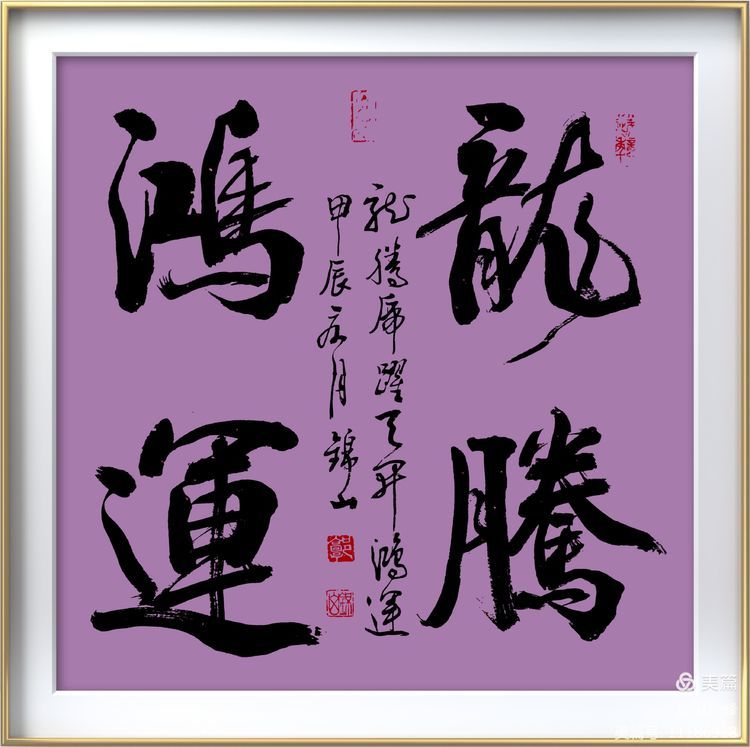 龍騰
龍騰虎躍天開鴻運
甲辰月錦山
鴻運
美篇